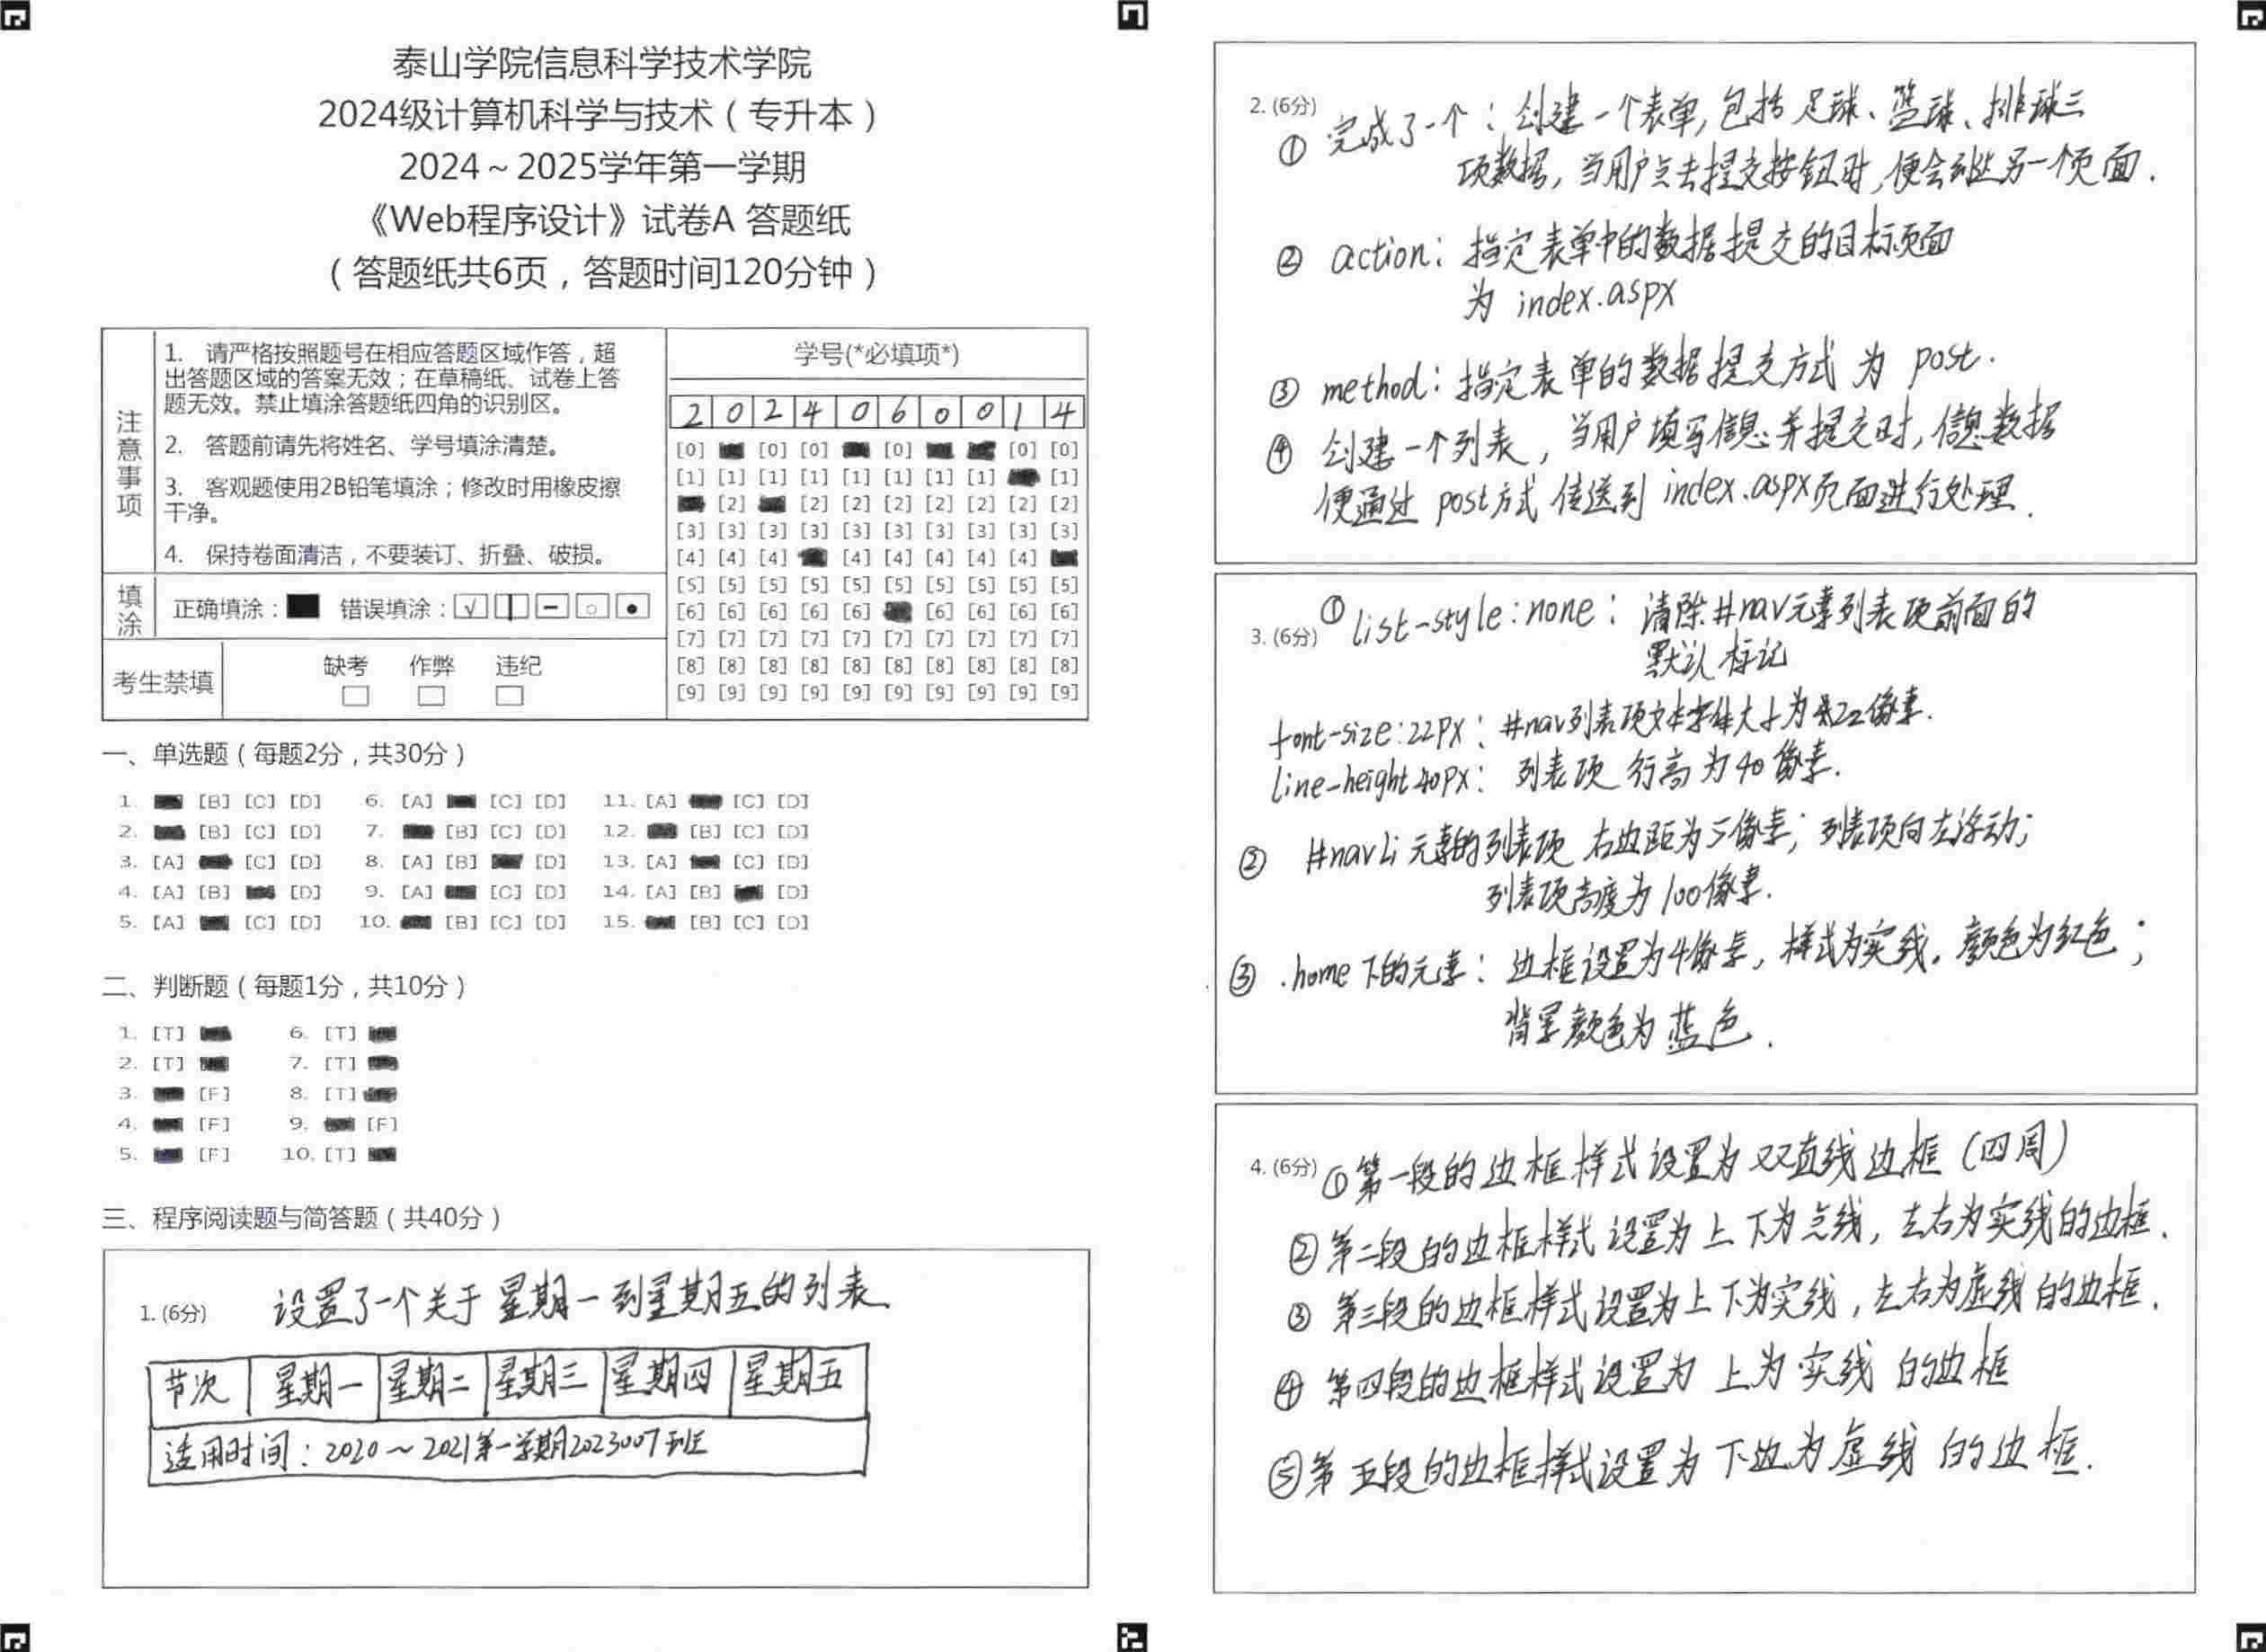 泰山学院信息科学技术学院
2024级计算机科学与技术（专升本）
2024～2025学年第一学期
《Web程序设计》试卷A 答题纸
（答题纸共6页，答题时间120分钟）
注意事项
1. 请严格按照题号在相应答题区域作答，超
出答题区域的答案无效；在草稿纸、试卷上答
题无效。禁止填涂答题纸四角的识别区。
2. 答题前请先将姓名、学号填涂清楚。
3. 客观题使用2B铅笔填涂；修改时用橡皮擦
干净。
4. 保持卷面清洁，不要装订、折叠、破损。
填涂
正确填涂： 错误填涂：
考生禁填
缺考 作弊 违纪
学号(*必填项*)
2 0 2 4 0 6 0 0 1 4
[0] [0] [0] [0] [0] [0]
[1] [1] [1] [1] [1] [1] [1] [1] [1]
[2] [2] [2] [2] [2] [2] [2] [2]
[3] [3] [3] [3] [3] [3] [3] [3] [3] [3]
[4] [4] [4] [4] [4] [4] [4] [4]
[5] [5] [5] [5] [5] [5] [5] [5] [5] [5]
[6] [6] [6] [6] [6] [6] [6] [6] [6]
[7] [7] [7] [7] [7] [7] [7] [7] [7] [7]
[8] [8] [8] [8] [8] [8] [8] [8] [8] [8]
[9] [9] [9] [9] [9] [9] [9] [9] [9] [9]
一、单选题（每题2分，共30分）
1. [B] [C] [D] 6. [A] [C] [D] 11. [A] [C] [D]
2. [B] [C] [D] 7. [B] [C] [D] 12. [B] [C] [D]
3. [A] [C] [D] 8. [A] [B] [D] 13. [A] [C] [D]
4. [A] [B] [D] 9. [A] [C] [D] 14. [A] [B] [D]
5. [A] [C] [D] 10. [B] [C] [D] 15. [B] [C] [D]
二、判断题（每题1分，共10分）
1. [T] 6. [T]
2. [T] 7. [T]
3. [F] 8. [T]
4. [F] 9. [F]
5. [F] 10. [T]
三、程序阅读题与简答题（共40分）
1. (6分) 设置了一个关于星期一到星期五的列表、
节次 星期一 星期二 星期三 星期四 星期五
适用时间：2020～2021第一学期2023007班
2. (6分)
① 完成了一个：创建一个表单，包括足球、篮球、排球三
项数据，当用户点击提交按钮时，便会到达另一个页面．
② action：指定表单中的数据提交的目标页面
为 index.aspx
③ method：指定表单的数据提交方式为 post．
④ 创建一个列表，当用户填写信息并提交时，信息数据
便通过 post方式 传送到 index.aspx页面进行处理．
3. (6分) ① list-style:none：清除#nav元素列表项前面的
默认标记
font-size:22px：#nav列表项文本字体大小为22像素．
line-height40px：列表项 行高为40像素．
② #navLi元素的列表项 右边距为5像素；列表项向左浮动；
列表项高度为100像素．
③ .home下的元素：边框设置为4像素，样式为实线，颜色为红色；
背景颜色为蓝色．
4. (6分) ①第一段的边框样式设置为双直线边框（四周）
②第二段的边框样式设置为上下为点线，左右为实线的边框．
③ 第三段的边框样式设置为上下为实线，左右为虚线的边框．
④ 第四段的边框样式设置为 上为实线 的边框
⑤第五段的边框样式设置为 下边为虚线 的边框．